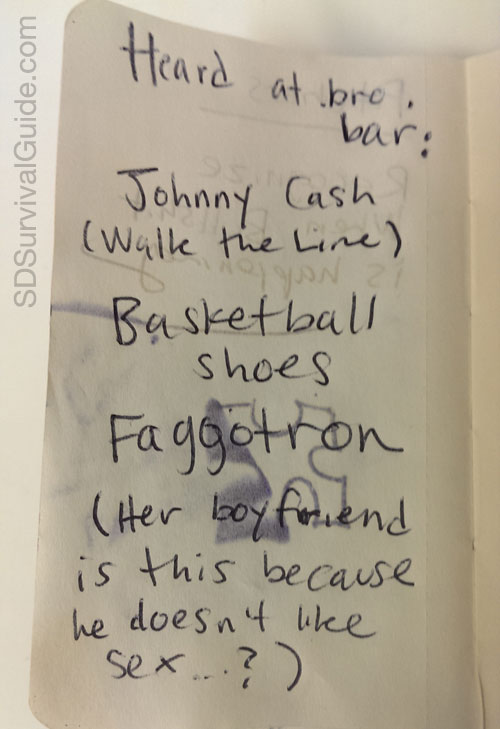 SDSurvivalGuide.com
Heard at bro.
bar:
Johnny Cash
(Walk the Line)
Basketball
shoes
Faggotron
(Her boyfriend
is this because
he doesn't like
sex...?)